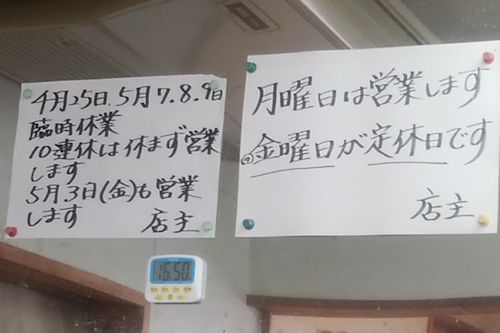 4月25日、5月7.8.9日
臨時休業
10連休は休まず営業
します
5月3日(金)も営業
します
店主
月曜日は営業します
金曜日が定休日です
店主
16:50